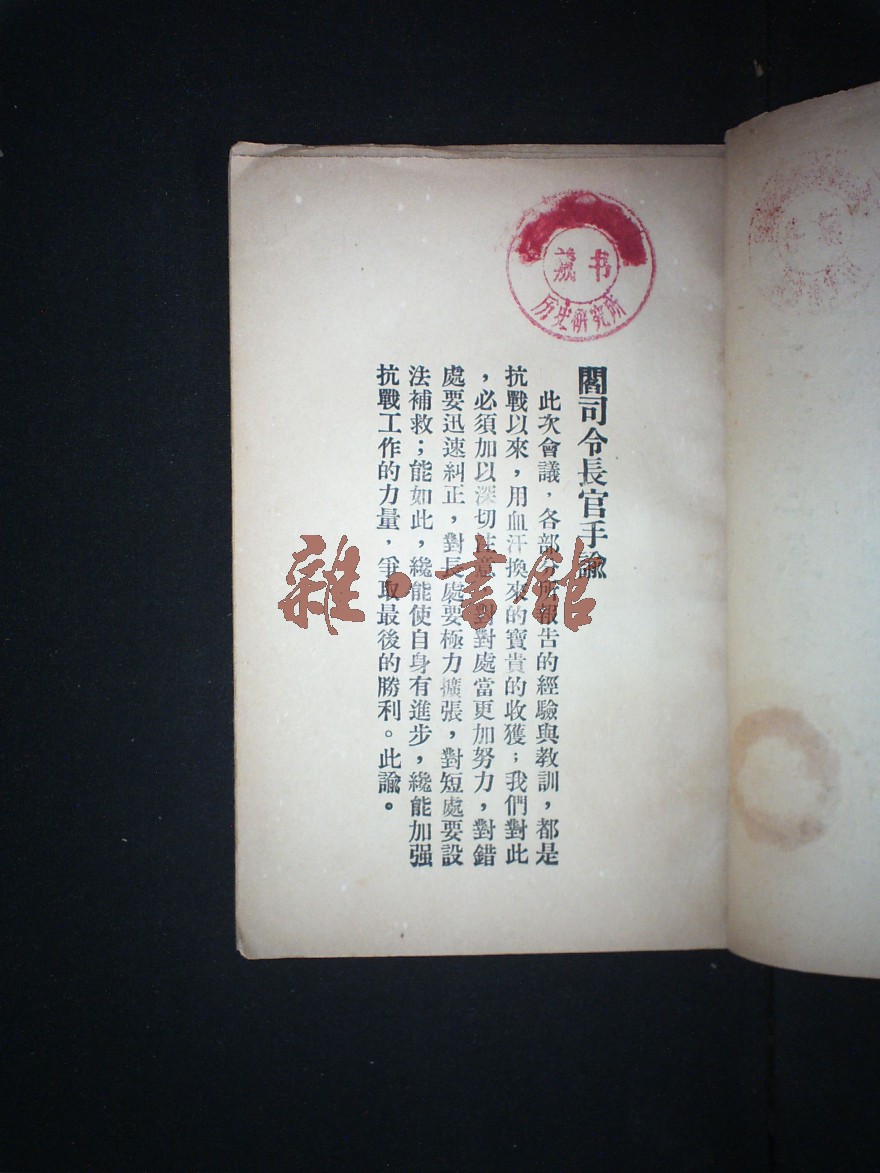 閻司令長官手諭
此次會議，各部分所報告的經驗與教訓，都是
抗戰以來，用血汗換來的寶貴的收獲；我們對此
，必須加以深切注意，對對處當更加努力，對錯
處要迅速糾正，對長處要極力擴張，對短處要設
法補救；能如此，纔能使自身有進步，纔能加强
抗戰工作的力量，爭取最後的勝利。此諭。
书
历史研究所
雜·書館